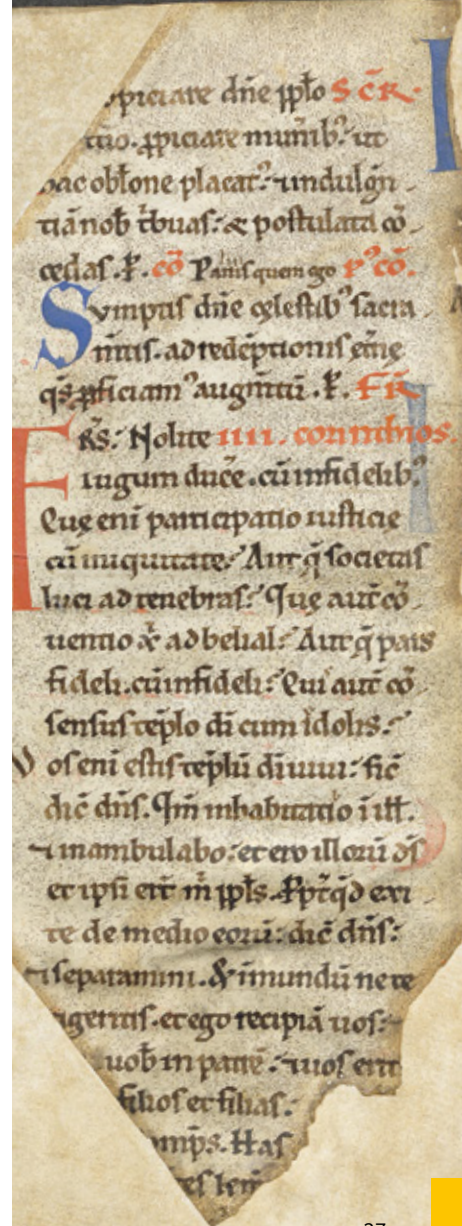 piciare dñe pplo SCR.
tuo. ppiciare munib⁹: ut
hac oblone placat⁹: ⁊ indulgn
tiā nob tbuas: & postulata cō
cedas. P. cō Panis quem ego P⁹ cō.
Sumptis dñe celestib⁹ sacra
mtis. ad redēptionis etne
qs pficiam⁹ augmtū. P. FR
FRS: Nolite IIII. corinthios.
iugum ducē. cū infidelib⁹
Quę eni participatio iusticię
cū iniquitate: Aut q̄ societas
luci ad tenebras: Quę aut cō
uentio x̄ ad belial: Aut q̄ pars
fideli. cū infideli: Qui aut cō
sensus tēplo dī cum idolis:
Vos enī estis tēplū dī uiui: sic̄
dic̄ dn̄s. Qm̄ inhabitabo ī ill̄.
⁊ inambulabo: et ero illorū ds̄
et ipsi ert̄ m̄ ppl̄s. Ppt̄ qd̄ exi
te de medio eorū: dic̄ dn̄s:
⁊ separamini. & īmundū ne te
tigeritis. et ego recipiā uos:
uob̄ in patrē: ⁊ uos erit̄
filios et filias:
omps̄. Has